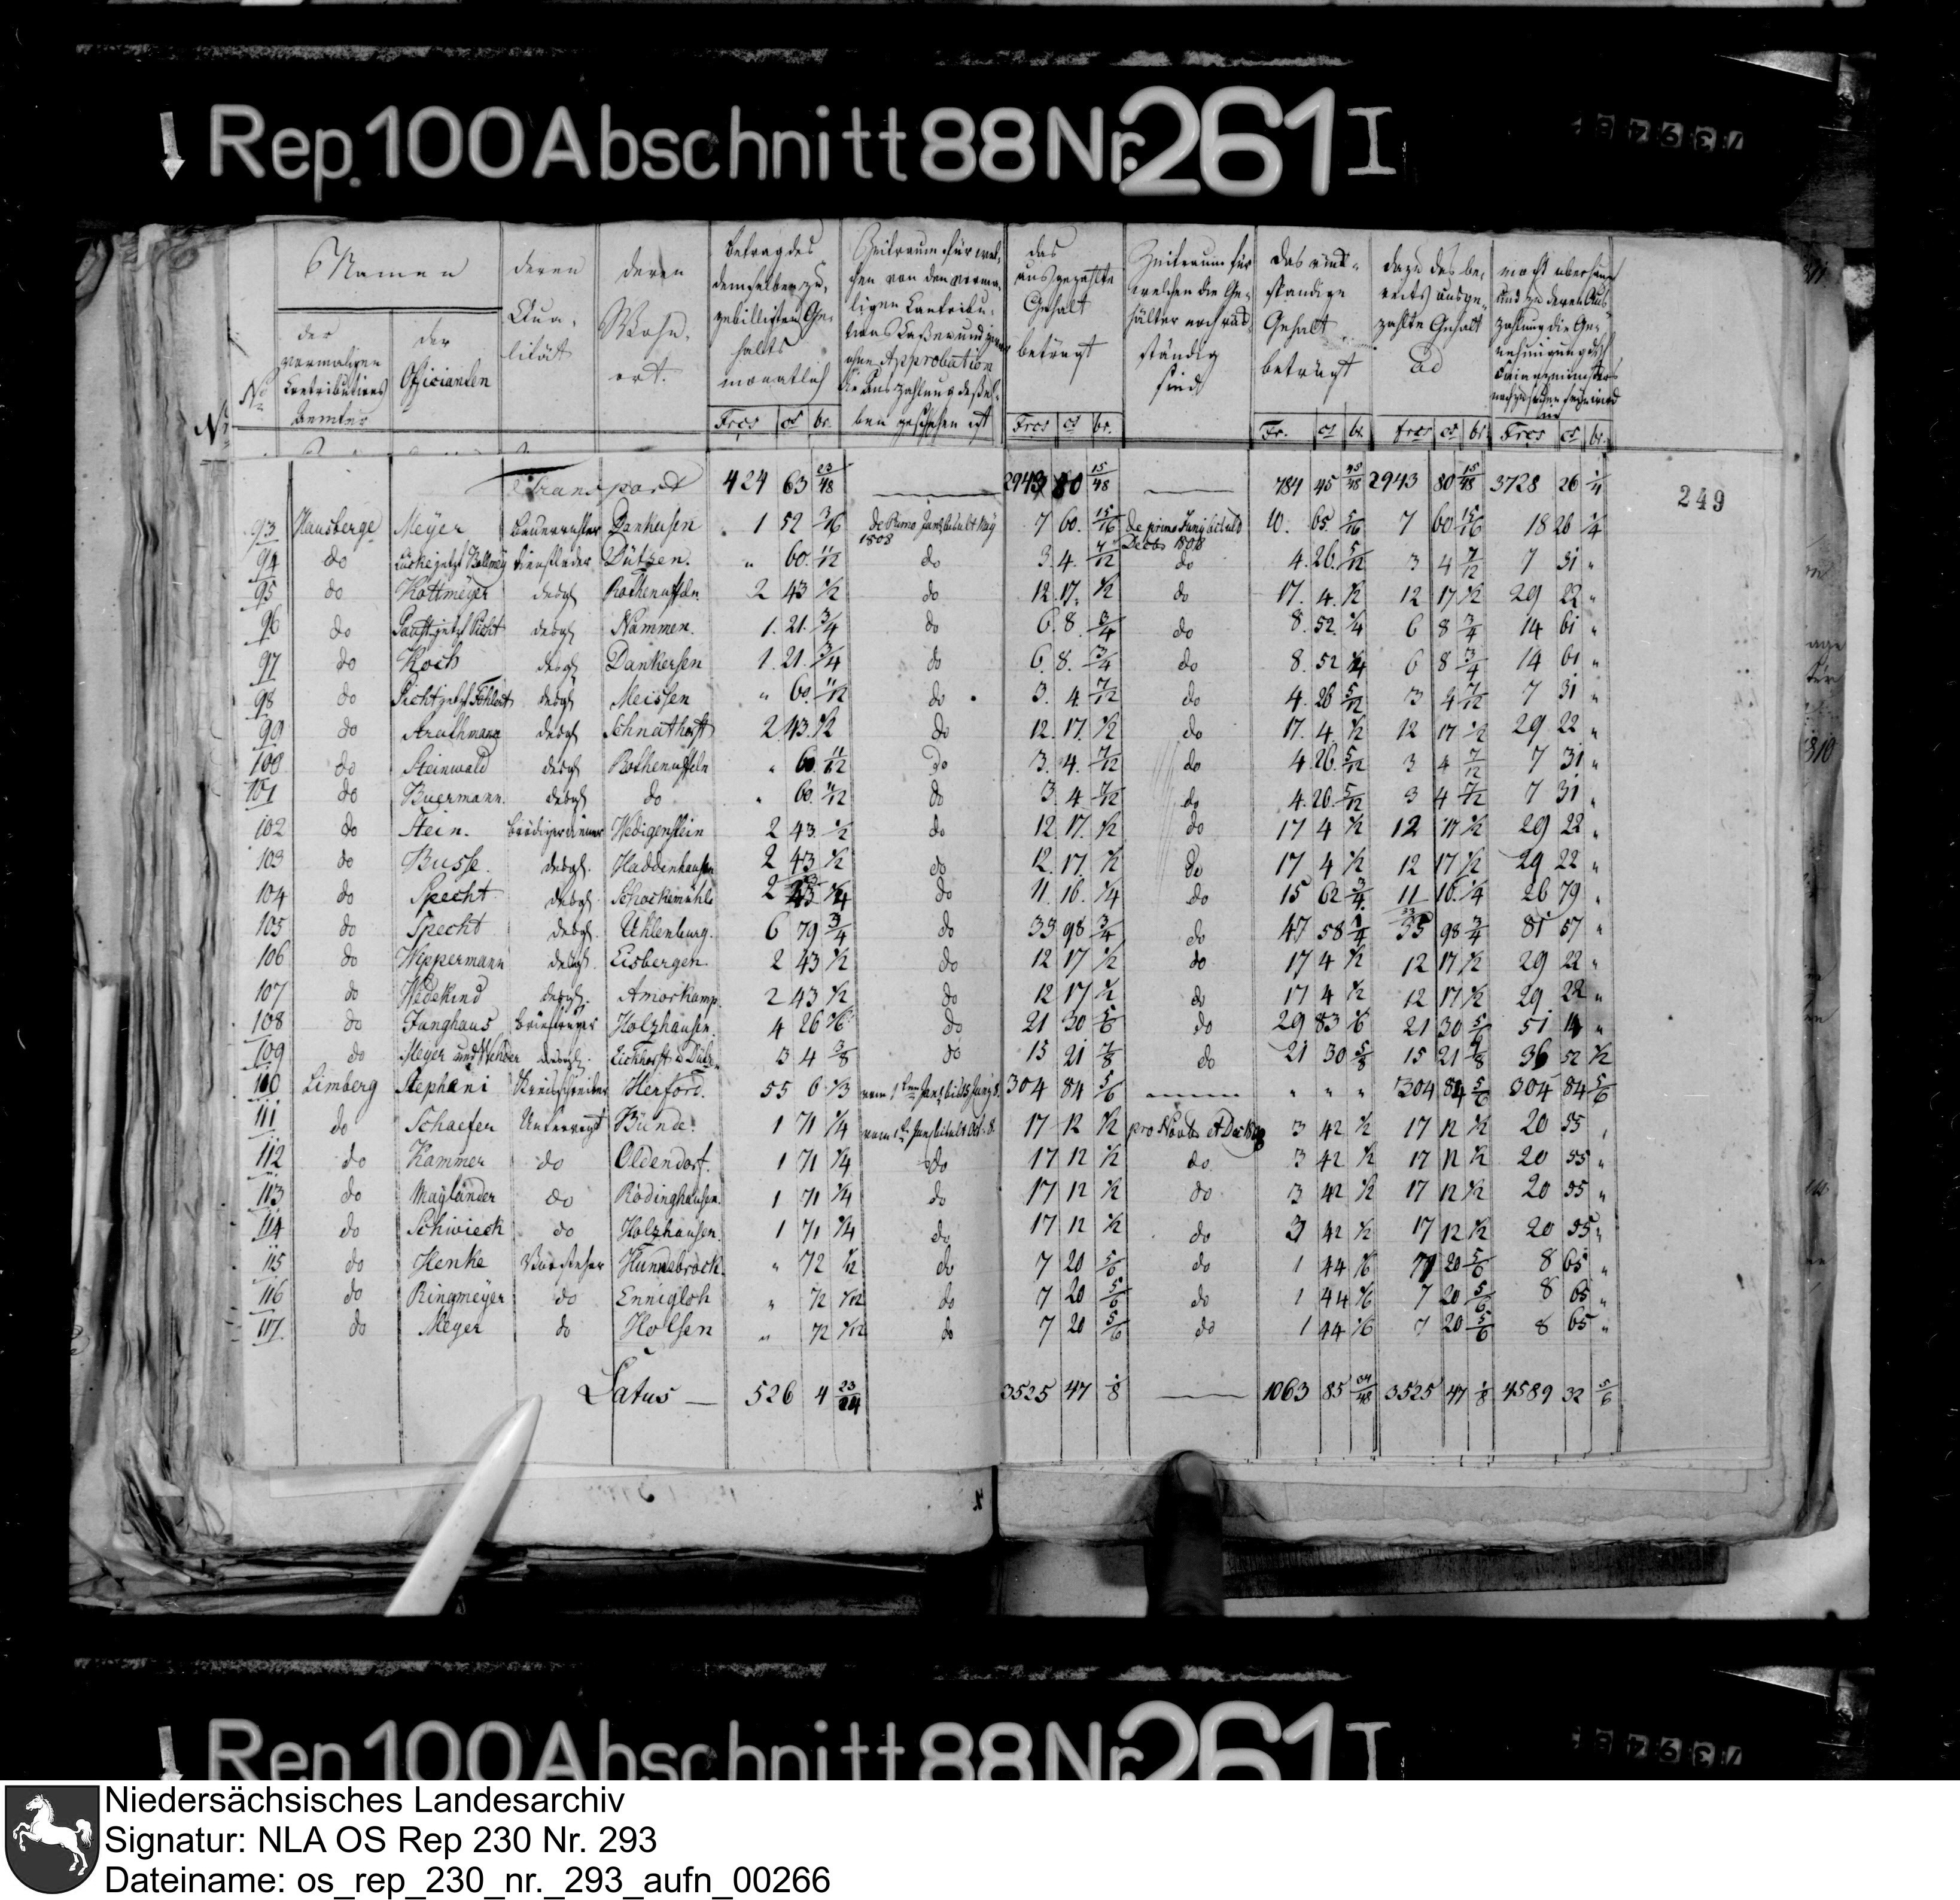 Rep. 100 Abschnitt 88 Nr. 261 I
Namen
der vermaligen Contributions Aemter
der Officianten
deren Qualität
deren Wohnort.
Betrag des demselben zugebilligten Gehalts monatlich
Zeitraum für welchen von den vormaligen Contributions Caßen und zwar ohne Approbation die Auszahlung deßelben geschehen ist
das ausgezahlte Gehalt beträgt
Zeitraum für welchen die Gehälter noch rückständig sind
Das rückständige Gehalt beträgt
dazu das bereits ausgezahlte Gehalt ad
macht überhaupt und zu deren Auszahlung die Genehmigung des Finanzministers
No
Frcs cs br. Frcs cs br. Fr. cs br. frcs cs br. Frcs cs br.
Transport 424 63 23/48 — 2943 80 15/48 — 784 45 45/48 2943 80 15/48 3728 26 1/4
249
93 Hausberge Meyer Bauerrichter Dankersen 1 52 3/16 de Primo Jan. bis ult May 1808 7 60 15/16 de primo Juny bis ult Decbr 1808 10. 65 5/16 7 60 15/16 18 26 1/4
94 do Lücke jetzt Bollmey Dützen. " 60. 11/12 do 3. 4. 7/12 do 4. 26. 5/12 3 4 7/12 7 31 "
95 do Kottmeyer desgl Rothenuffeln 2 43 1/2 do 12. 17. 1/2 do 17. 4. 1/2 12 17 1/2 29 22 "
96 do jetzt Picht desgl Nammen. 1. 21. 3/4 do 6. 8. 3/4 do 8. 52. 1/4 6 8 3/4 14 61 "
97 do Koch desgl Dankersen 1. 21. 3/4 do 6. 8. 3/4 do 8. 52 1/4 6 8 3/4 14 61 "
98 do Picht jetzt desgl Meissen " 60. 11/12 do 3. 4 7/12 do 4. 26 5/12 3 4 7/12 7 31 "
99 do desgl Schnathorst 2 43. 1/2 do 12. 17. 1/2 do 17. 4 1/2 12 17 1/2 29 22 "
100 do Steinwald desgl Rothenuffeln " 60. 11/12 do 3. 4. 7/12 do 4. 26. 5/12 3 4 7/12 7 31 "
101 do Buermann. desgl do " 60. 11/12 do 3. 4 7/12 do 4. 26. 5/12 3 4 7/12 7 31 "
102 do Stein. Wedigenstein 2 43. 1/2 do 12 17. 1/2 do 17 4 1/2 12 17 1/2 29 22 "
103 do Busse. desgl. Haddenhausen 2 43 1/2 do 12. 17. 1/2 do 17 4 1/2 12 17 1/2 29 22 "
104 do Specht desgl Schockemühle 2 1/4 do 11. 16. 1/4 do 15 62 3/4 11 16. 1/4 26 79 "
105 do Specht desgl Uhlenburg. 6 79 3/4 do 33 98 3/4 do 47 58 1/4 33 98 3/4 81 57 "
106 do Wippermann desgl. Eisbergen. 2 43 1/2 do 12 17 1/2 do 17 4 1/2 12 17 1/2 29 22 "
107 do Wedekind desgl. Amorkamp. 2 43 1/2 do 12 17 1/2 do 17 4 1/2 12 17 1/2 29 22 "
108 do Junghaus Briefträger Holzhausen. 4 26 1/6 do 21 30 5/6 do 29 83 1/6 21 30 5/6 51 14 "
109 do Meyer und desgl. Eickhorst u Dütz. 3 4 3/8 do 15 21 7/8 do 21 30 5/8 15 21 7/8 36 52 1/2
110 Limberg Stephani Kreisschreiber Herford. 55 6 1/3 304 84 5/6 — " " " 304 84 5/6 304 84 5/6
111 do Schaefer Untervogt Bünde. 1 71 1/4 vom 1ten Jan. bis ult Oct. 8. 17 12 1/2 pro Novbr et Decbr 3 42 1/2 17 12 1/2 20 55 "
112 do Kammer do Oldendorf. 1 71 1/4 do 17 12 1/2 do 3 42 1/2 17 12 1/2 20 55 "
113 do Mayländer do Rödinghausen. 1 71 1/4 do 17 12 1/2 do 3 42 1/2 17 12 1/2 20 55 "
114 do Schwieck do Holzhausen. 1 71 1/4 do 17 12 1/2 do 3 42 1/2 17 12 1/2 20 55 "
115 do Henke Vorsteher Hunnebrock. " 72 1/12 do 7 20 5/6 do 1 44 1/6 7 20 5/6 8 65 "
116 do Ringmeyer do Ennigloh " 72 1/12 do 7 20 5/6 do 1 44 1/6 7 20 5/6 8 65 "
117. do Meyer do Holsen " 72 1/12 do 7 20 5/6 do 1 44 1/6 7 20 5/6 8 65 "
Latus — 526 4 23/24 3525 47 1/8 — 1063 85 34/48 3525 47 1/8 4589 32 5/6
Rep. 100 Abschnitt 88 Nr. 261 I
Niedersächsisches Landesarchiv
Signatur: NLA OS Rep 230 Nr. 293
Dateiname: os_rep_230_nr._293_aufn_00266